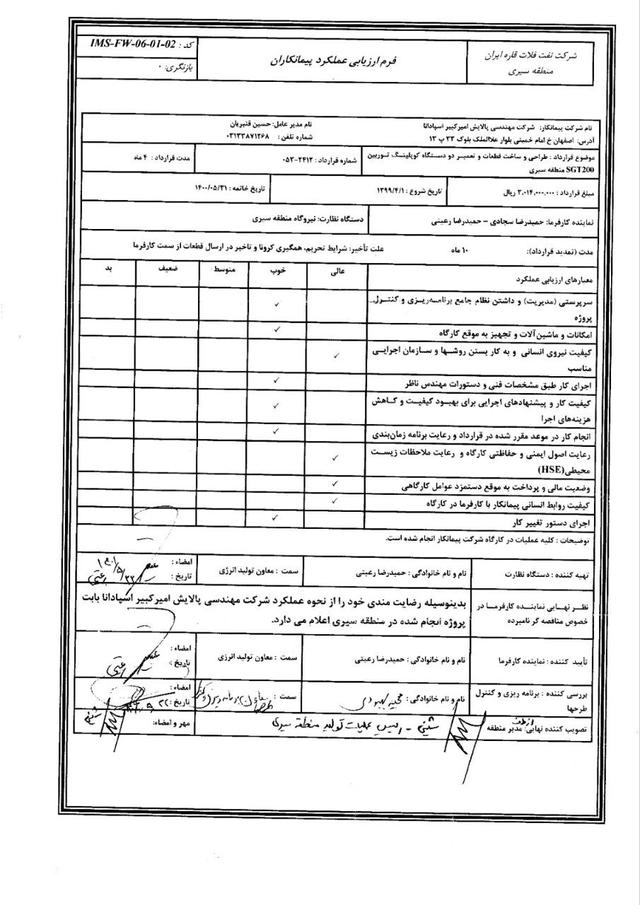 شرکت نفت فلات قاره ایران
منطقه سیری
فرم ارزیابی عملکرد پیمانکاران
کد : IMS-FW-06-01-02
بازنگری : ۰
نام شرکت پیمانکار: شرکت مهندسی پالایش امیرکبیر اسپادانا
نام مدیر عامل: حسین قنبریان
آدرس: اصفهان خ امام خمینی بلوار علاالملک بلوک ۲۳ پ ۱۳
شماره تلفن : ۰۳۱۳۳۸۷۱۲۶۸
موضوع قرارداد : طراحی و ساخت قطعات و تعمیر دو دستگاه کوپلینگ توربین
SGT200 منطقه سیری
شماره قرارداد : ۲۴۱۳-۰۵۲
مدت قرارداد : ۴ ماه
مبلغ قرارداد : ۳,۰۱۴,۰۰۰,۰۰۰ ریال
تاریخ شروع : ۱۳۹۹/۴/۱
تاریخ خاتمه : ۱۴۰۰/۰۵/۳۱
نماینده کارفرما: حمیدرضا سجادی – حمیدرضا رعیتی
دستگاه نظارت: نیروگاه منطقه سیری
مدت (تمدید قرارداد): ۱۰ ماه
علت تأخیر: شرایط تحریم، همگیری کرونا و تاخیر در ارسال قطعات از سمت کارفرما
معیارهای ارزیابی عملکرد
عالی
خوب
متوسط
ضعیف
بد
سرپرستی (مدیریت) و داشتن نظام جامع برنامه‌ریزی و کنترل
پروژه
✓
امکانات و ماشین آلات و تجهیز به موقع کارگاه
✓
کیفیت نیروی انسانی و به کار بستن روشها و سازمان اجرایی
مناسب
✓
اجرای کار طبق مشخصات فنی و دستورات مهندس ناظر
✓
کیفیت کار و پیشنهادهای اجرایی برای بهبود کیفیت و کاهش
هزینه‌های اجرا
✓
انجام کار در موعد مقرر شده در قرارداد و رعایت برنامه زمان‌بندی
✓
رعایت اصول ایمنی و حفاظتی کارگاه و رعایت ملاحظات زیست
محیطی(HSE)
✓
وضعیت مالی و پرداخت به موقع دستمزد عوامل کارگاهی
✓
کیفیت روابط انسانی پیمانکار با کارفرما در کارگاه
✓
اجرای دستور تغییر کار
✓
توضیحات : کلیه عملیات در کارگاه شرکت پیمانکار انجام شده است.
تهیه کننده : دستگاه نظارت
نام و نام خانوادگی : حمیدرضا رعیتی
سمت : معاون تولید انرژی
امضاء :
تاریخ :
نظر نهایی نماینده کارفرما در
خصوص مناقصه گر نامبرده
بدینوسیله رضایت مندی خود را از نحوه عملکرد شرکت مهندسی پالایش امیرکبیر اسپادانا بابت
پروژه انجام شده در منطقه سیری اعلام می دارد.
تأیید کننده : نماینده کارفرما
نام و نام خانوادگی : حمیدرضا رعیتی
سمت : معاون تولید انرژی
امضاء :
تاریخ :
بررسی کننده : برنامه ریزی و کنترل
طرحها
نام و نام خانوادگی :
سمت :
امضاء :
تاریخ :
تصویب کننده نهایی: مدیر منطقه
از طرف
رئیس عملیات تولید منطقه سیری
مهر و امضاء: